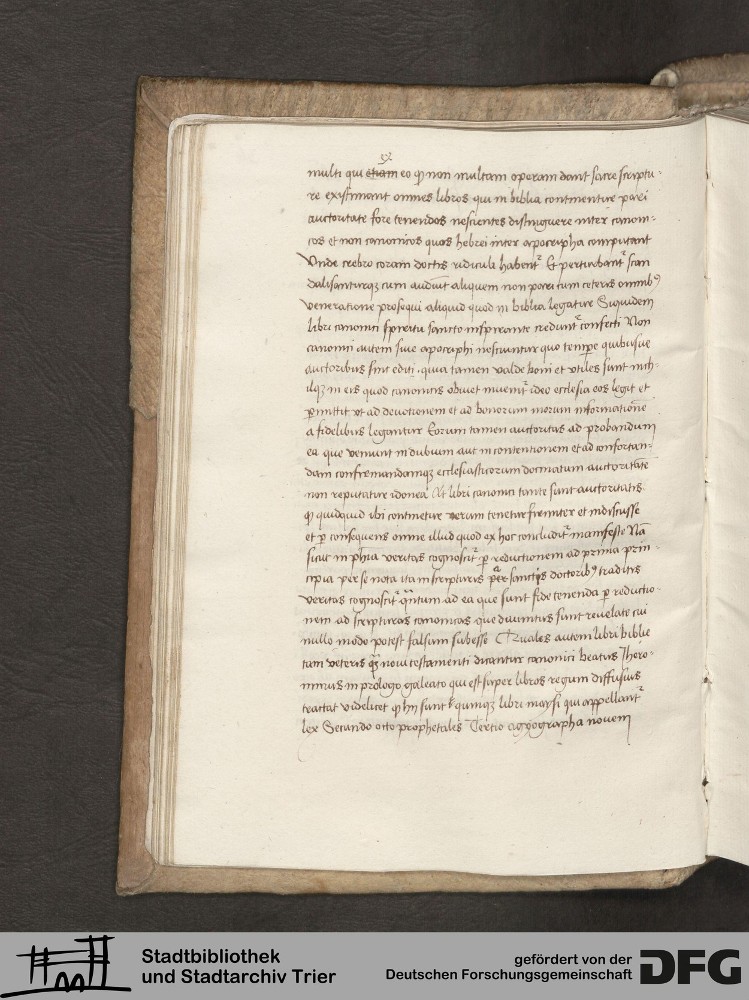 ex
multi qui etiam eo qꝫ non multam operam dant sacre scriptu-
re existimant omnes libros qui in biblia continentur pari
auctoritate fore tenendos nescientes distinguere inter canoni-
cos et non canonicos quos hebrei inter apocripha computant
Vnde crebro coram doctis ridiculi habent᷑ Et perturbant᷑ scan
dalisanturqꝫ cum audiūt aliquem non pari cum ceteris omnibꝰ
veneratione prosequi aliquid quod in biblia legatur Siquidem
libri canonici spiritu sancto inspirante credunt᷑ confecti Non
canonici autem siue apocriphi nesciuntur quo tempe quibusue
auctoribus sint editi . quia tamen valde boni et vtiles sunt nich-
ilqꝫ in eis quod canonicis obuiet inuenit᷑ ideo ecclesia eos legit et
pmittit vt ad deuotionem et ad bonorum morum informationē
a fidelibus legantur Eorum tamen auctoritas ad probandum
ea que veniunt in dubium aut in contentionem et ad confortan-
dam confirmandamqꝫ ecclesiasticorum docmatum auctoritatē
non reputatur idonea At libri canonici tante sunt auctoritatis
qꝫ quidquid ibi continetur verum tenetur firmiter et indiscusse
et p consequens omne illud quod ex hoc concludit᷑ manifeste Nā
sicut in phīa veritas cognoscit᷑ p reductionem ad prima prin-
cipia per se nota ita in scripturis a sanctis doctoribꝰ traditis
veritas cognoscit᷑ qntum ad ea que sunt fide tenenda p reductio-
nem ad scripturas canonicas que diuinitus sunt reuelate cui
nullo modo potest falsum subesse Quales autem libri biblie
tam veteris qꝫ noui testamenti dicantur canonici beatus Ihero-
nimus in prologo galeato qui est super libros regum diffusius
tractat videlicet qꝫ hij sunt quinqꝫ libri moysi qui appellant᷑
lex Secundo octo prophetales Tertio agyographa nouem
Stadtbibliothek
und Stadtarchiv Trier
gefördert von der
Deutschen Forschungsgemeinschaft
DFG